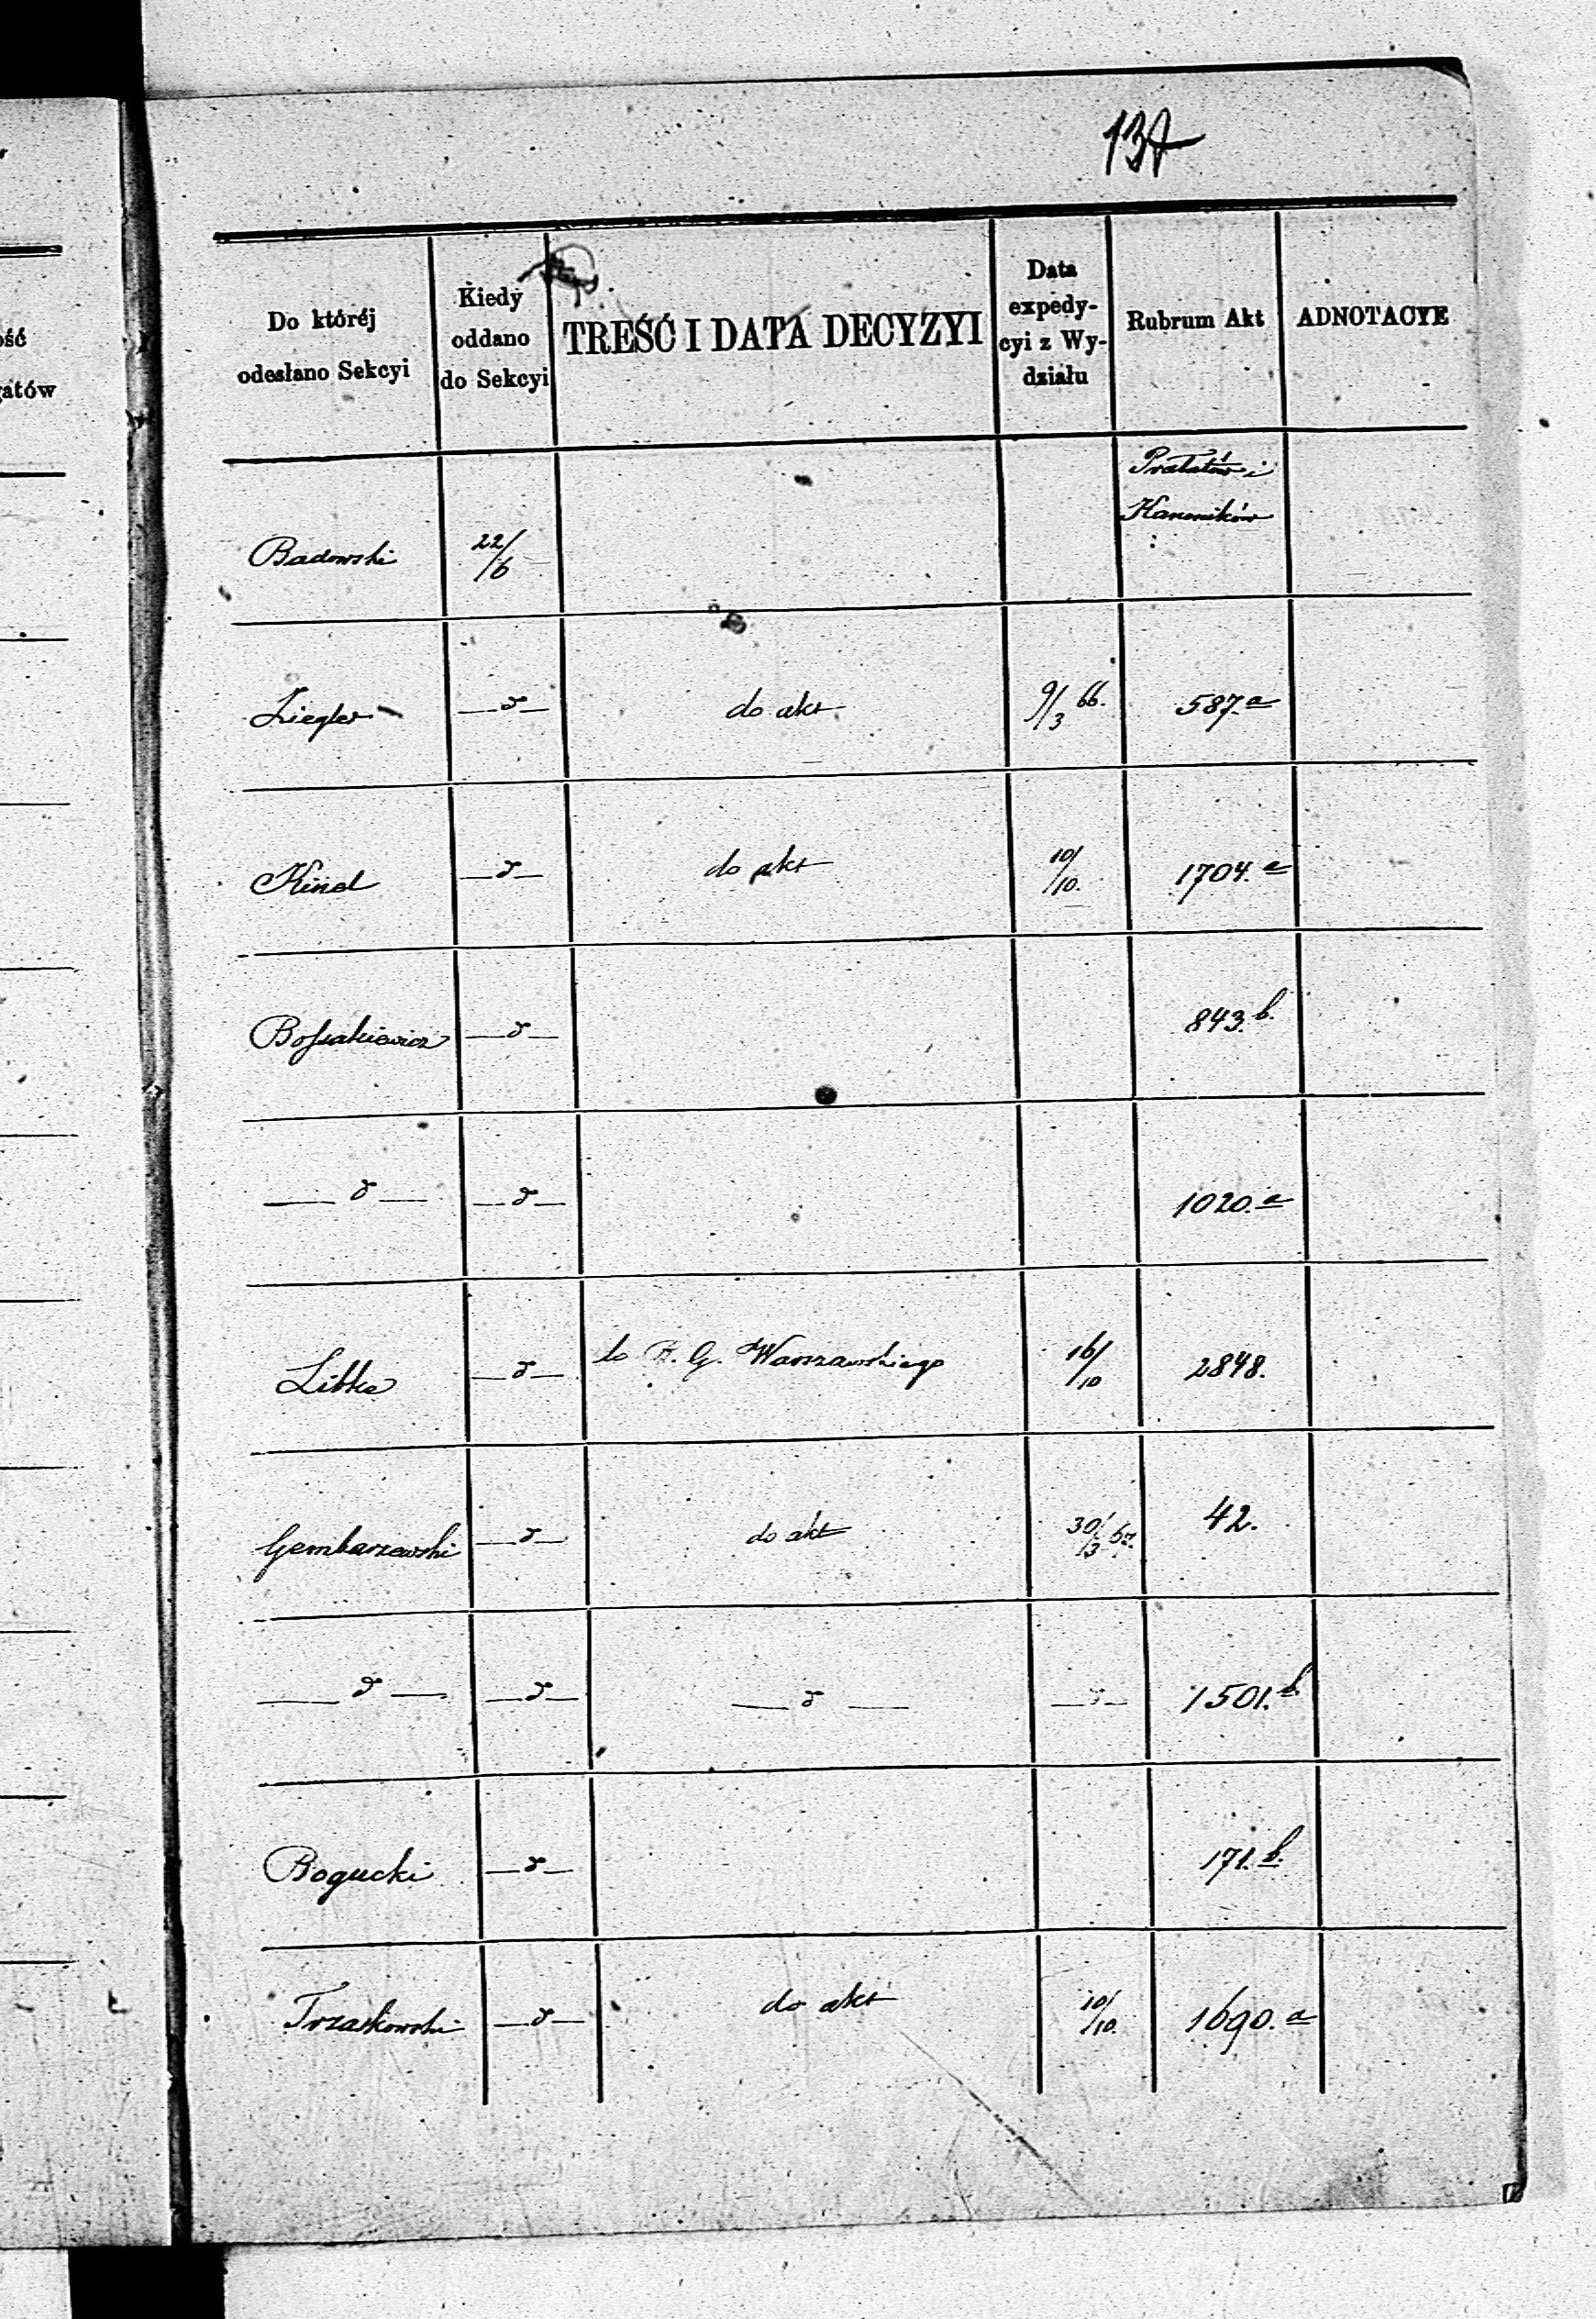 137
Do któréj
odesłano Sekcyi
Kiedy
oddano
do Sekcyi
TREŚĆ I DATA DECYZYI
Data
expedy-
cyi z Wy-
działu
Rubrum Akt
ADNOTACYE
ość
gatów
Badowski 22/6 Prałatów i
Kanoników
Ziegler — d — do akt 9/3 66. 587.a
Kinel — d — do akt 10/10. 1704.a
Bossakiewicz — d — 843.b.
— d — — d — 1020.a
Libke — d — do R. G. Warszawskiego 16/10 2848.
Gembarzewski — d — do akt 30/3 67. 42.
— d — — d — — d — — d — 1501.b
Bogucki — d — 171.b.
Trzaskowski — d — do akt 10/10. 1690.a